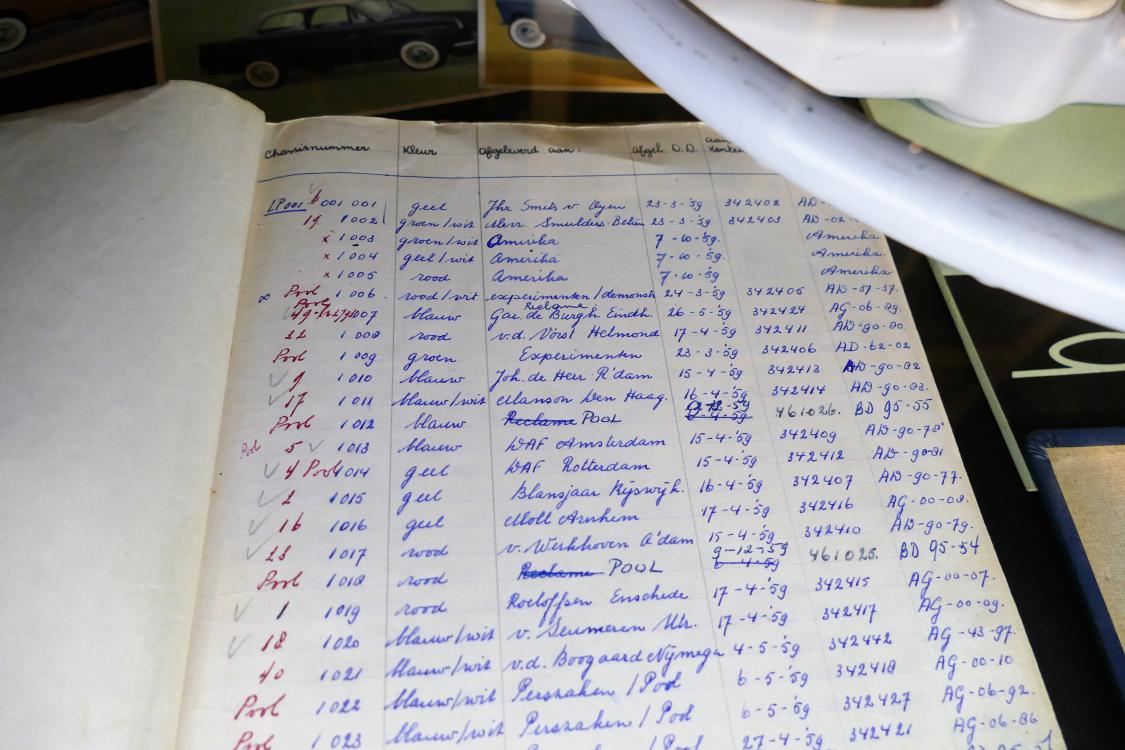 Chassisnummer Kleur Afgeleverd aan: Afgel. D.D. aan
LP001 6 001 001 geel Jhr Smits v. Oyen 23-3-'59 342402 AD-
19 1002 groen/wit Mevr. Smulders 23-3-'59 342403 AD-02-
x 1003 groen/wit Amerika 7-10-59. Amerika
x 1004 geel/wit Amerika 7-10-'59 Amerika.
x 1005 rood Amerika 7-10-'59. Amerika
∞ Pool 1006. rood/wit experimenten/demonstr 24-3-'59 342405 AD-37-37.
Pool Reclame
1007 blauw Gar. de Burgh Eindh. 26-5-'59 342424 AG-06-89.
22 1008 rood v.d. Vorst Helmond 17-4-'59 342411 AD-90-80.
Pool 1009 groen Experimenten 23-3-'59 342406 AD-62-02
9 1010 blauw Joh. de Heer R'dam 15-4-'59 342413 AD-90-82
17 1011 blauw/wit Manson Den Haag. 16-4-'59 342414 AD-90-83.
Pool 1012 blauw Reclame POOL 461026. BD 95-55
Pool 5 1013 blauw DAF Amsterdam 15-4-'59 342409 AD-90-78
4 Pool 1014 geel DAF Rotterdam 15-4-'59 342412 AD-90-81
2 1015 geel Blansjaar Rijswijk. 16-4-'59 342407 AD-90-77.
16 1016 geel Moll Arnhem 17-4-'59 342416 AG-00-08.
23 1017 rood v. Werkhoven A'dam 15-4-'59 342410 AD-90-79.
Pool 1018 rood Reclame POOL 9-12-'59 6-4-59 461025. BD 95-54
1 1019 rood Roeloffsen Enschede 17-4-'59 342415 AG-00-07.
18 1020 blauw/wit v. Seumeren Utr. 17-4-'59 342417 AG-00-09.
40 1021 blauw/wit v.d. Boogaard Nijmegen 4-5-'59 342442 AG-43-97.
Pool 1022 blauw/wit Perszaken / Pool 6-5-'59 342418 AG-00-10
Pool 1023 blauw/wit Perszaken / Pool 6-5-'59 342427 AG-06-92.
Pool 27-4-'59 342421 AG-06-86
b